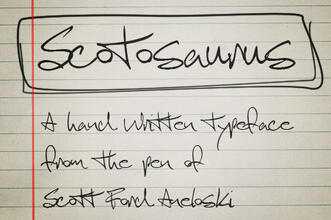 Scotosaurus
A hand written Typeface
from the pen of
Scott Ford Aneloski